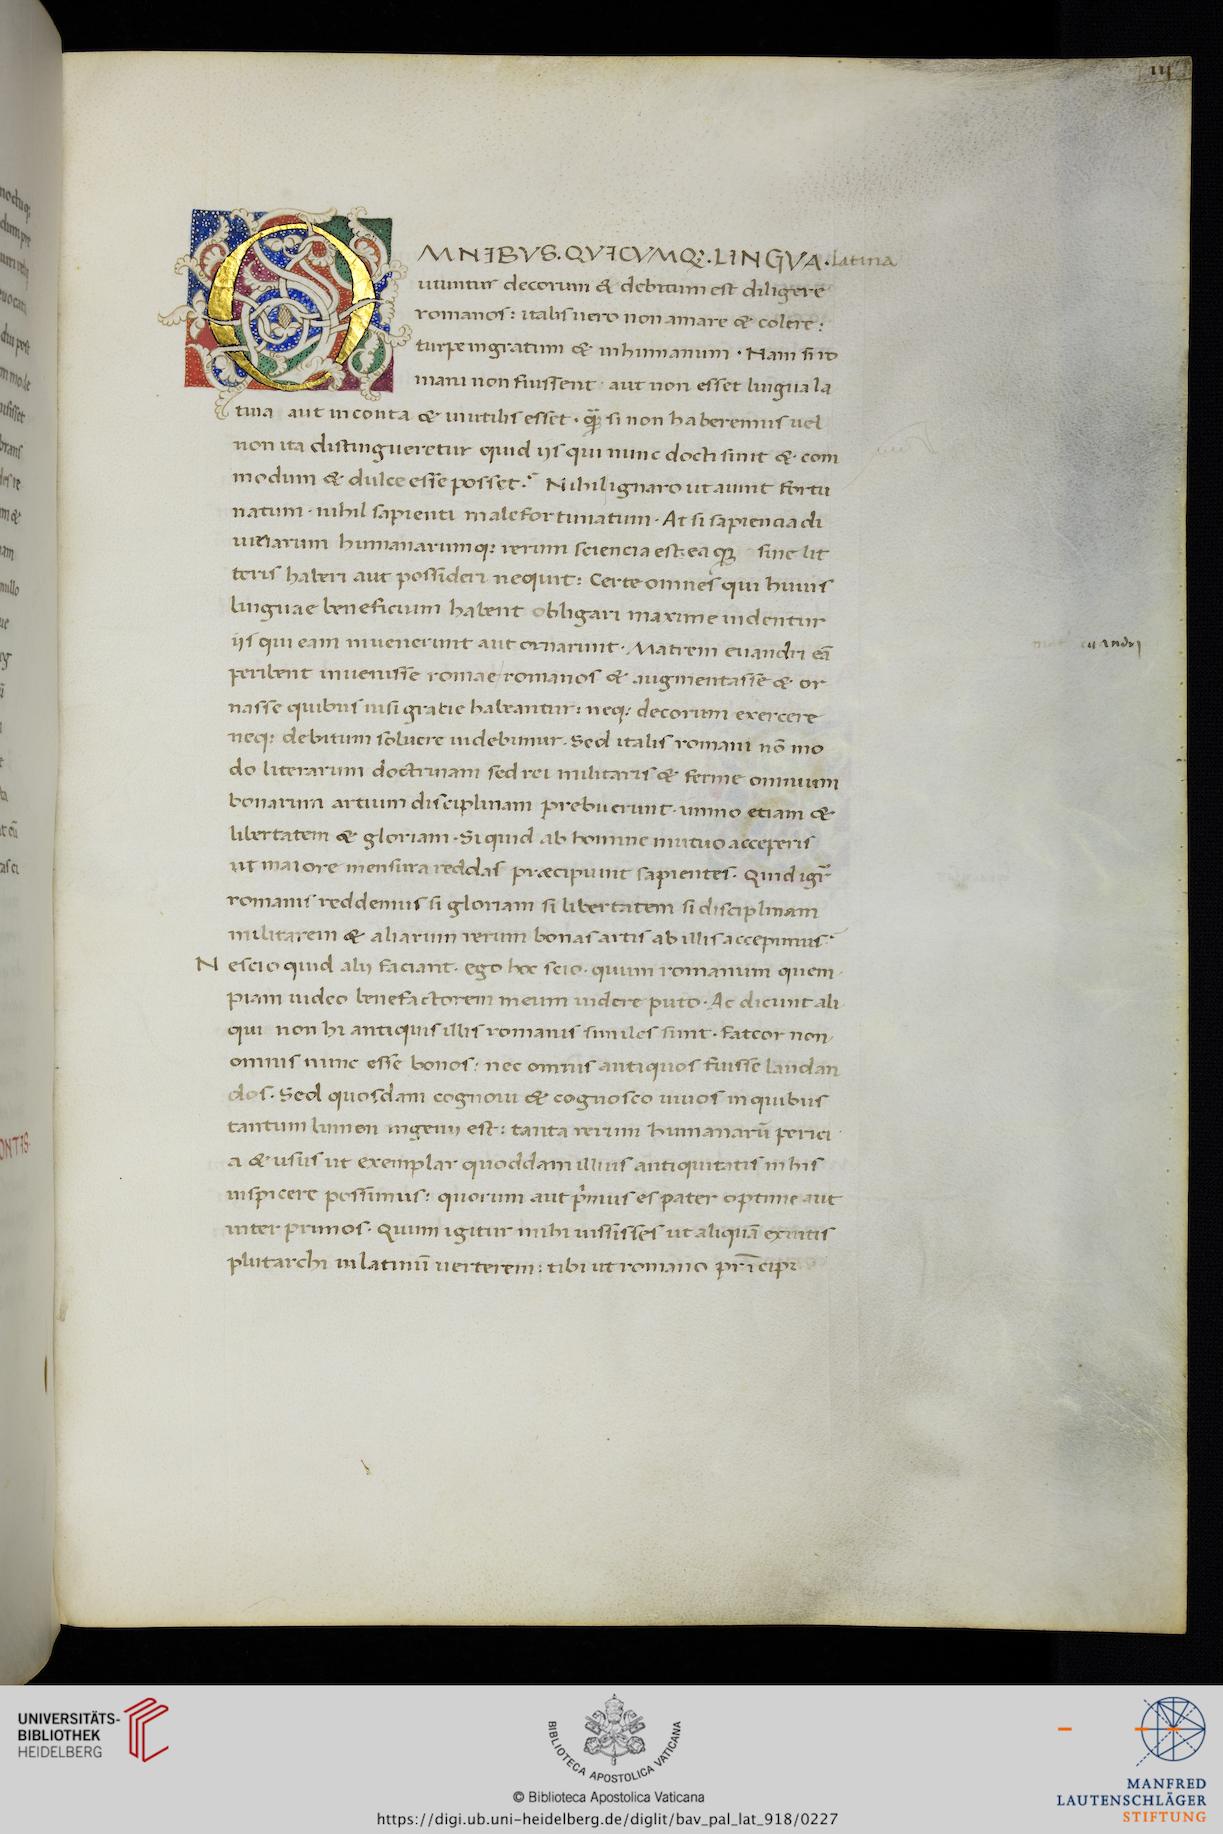 111
OMNIBVS.QVICVMQ;.LINGVA.latina
utuntur decorum & debitum est diligere
romanos: italis uero non amare & colere:
turpe ingratum & inhumanum. Nam si ro
mani non fuissent aut non esset lingua la
tina aut inconta & inutilis esset. si non haberemus uel
non ita distingueretur quid ijs qui nunc docti sunt & com
modum & dulce esse posset. Nihil ignaro ut aiunt fortu
natum. nihil sapienti male fortunatum. At si sapiencia di
uinarum humanarumq; rerum sciencia est: ea sine lit
teris haberi aut possideri nequit: Certe omnes qui huius
linguae beneficium habent obligari maxime uidentur
ijs qui eam inuenerunt aut ornarunt. Matrem euandri eā
peribent inuenisse romae romanos & augmentasse & or
nasse quibus nisi gratie habeantur: neq; decorum exercere
neq; debitum soluere uidebimur. Sed italis romani nō mo
do literarum doctrinam sed rei militaris & ferme omnium
bonarum artium disciplinam prebuerunt. immo etiam &
libertatem & gloriam. Si quid ab homine mutuo acceperis
ut maiore mensura reddas præcipiunt sapientes. Quid igr̄
romanis reddemus si gloriam si libertatem si disciplinam
militarem & aliarum rerum bonas artis ab illis accepimus
Nescio quid alij faciant. ego hoc scio. quum romanum quem
piam uideo benefactorem meum uidere puto. Ac dicunt ali
qui non hi antiquis illis romanis similes sunt. Fateor non
omnis nunc esse bonos: nec omnis antiquos fuisse laudan
dos. Sed quosdam cognoui & cognosco uiuos in quibus
tantum lumen ingenij est: tanta rerum humanarū perici
a & usus ut exemplar quoddam illius antiquitatis in his
inspicere possimus: quorum aut p̄mus es pater optime aut
inter primos. Quum igitur mihi iussisses ut aliquā ex uitis
plutarchi in latinū uerterem: tibi ut romano prīcipi
euandri
UNIVERSITÄTS-
BIBLIOTHEK
HEIDELBERG
BIBLIOTECA APOSTOLICA VATICANA
© Biblioteca Apostolica Vaticana
https://digi.ub.uni-heidelberg.de/diglit/bav_pal_lat_918/0227
MANFRED
LAUTENSCHLÄGER
STIFTUNG